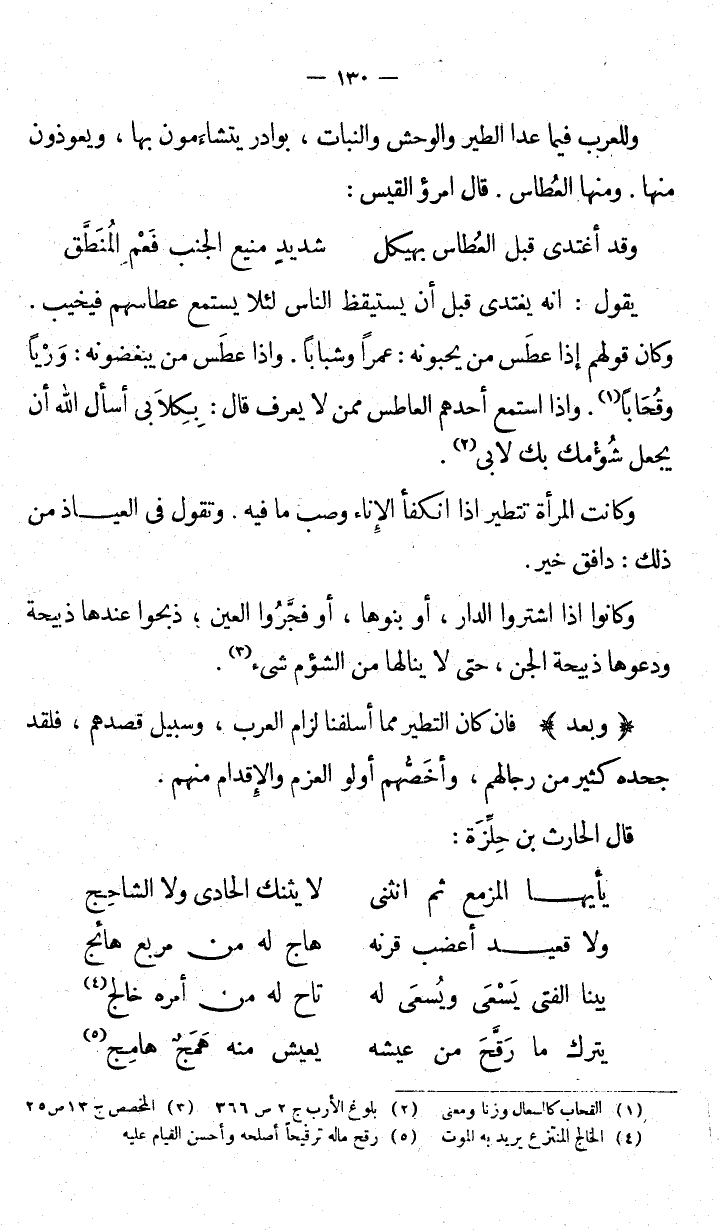 — ١٣٠ —
وللعرب فيما عدا الطير والوحش والنبات ، بوادر يتشاءمون بها ، ويعوذون
منها . ومنها العُطاس . قال امرؤ القيس :
وقد أغتدى قبل العُطاس بهيكل شديدٍ منيع الجنب فَعْمِ المُنَطَّق
يقول : انه يغتدى قبل أن يستيقظ الناس لئلا يستمع عطاسهم فيخيب .
وكان قولهم إذا عطَس من يحبونه : عمراً وشباباً . واذا عطَس من يبغضونه : وَرْياً
وقُحَاباً(١) . واذا استمع أحدهم العاطس ممن لا يعرف قال : بِكِلاَبى أسأل الله أن
يجعل شُؤمك بك لابى(٢) .
وكانت المرأة تتطير اذا انكفأ الإناء وصب ما فيه . وتقول فى العياذ من
ذلك : دافق خير .
وكانوا اذا اشتروا الدار ، أو بنوها ، أو فجَّرُوا العين ؛ ذبحوا عندها ذبيحة
ودعوها ذبيحة الجن ، حتى لا ينالها من الشؤم شىء(٣) .
﴿ وبعد ﴾ فان كان التطير مما أسلفنا لزام العرب ، وسبيل قصدهم ، فلقد
جحده كثير من رجالهم ، وأخَصُّهم أولو العزم والإقدام منهم .
قال الحارث بن حِلِّزَة :
يأيها المزمع ثم انثنى لا يثنك الحادى ولا الشاحِج
ولا قعيد أعضب قرنه هاج له من مربع هائج
بينا الفتى يَسْعَى ويُسعَى له تاح له من أمره خالج(٤)
يترك ما رَقَّحَ من عيشه يعيش منه هَمَجٌ هامِج(٥)
(١) القحاب كالسعال وزنا ومعنى (٢) بلوغ الأرب ج ٢ ص ٣٦٦ (٣) المخصص ج ١٣ ص ٢٥
(٤) الخالج المنتزع يريد به الموت (٥) رقح ماله ترقيحاً أصلحه وأحسن القيام عليه